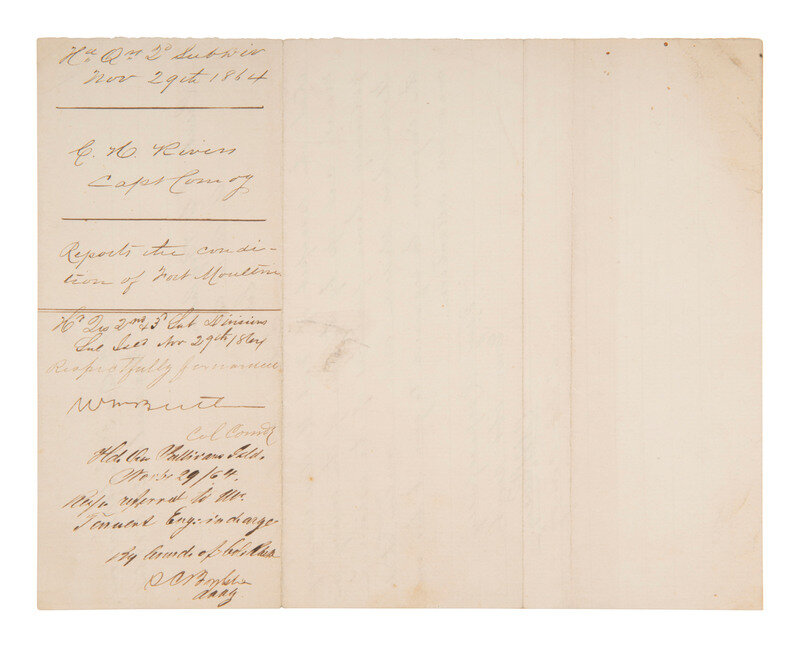 Hd Qrs 2d Subdiv
Nov 29th 1864
C. H. Rivers
Capt Comdg
Reports the condi-
tion of Fort Moultrie
Hd Qrs 2nd & 3d Sub Divisions
Sul Isld Nov 29th 1864
Respectfully forwarded
Wm Butler
Col Comdg
Hd. Qrs Sullivans Isld.
Nov. 29/64.
Resp. referred to Mr.
Tennent Engr. in charge
By Comd. of Col.
A A A G.